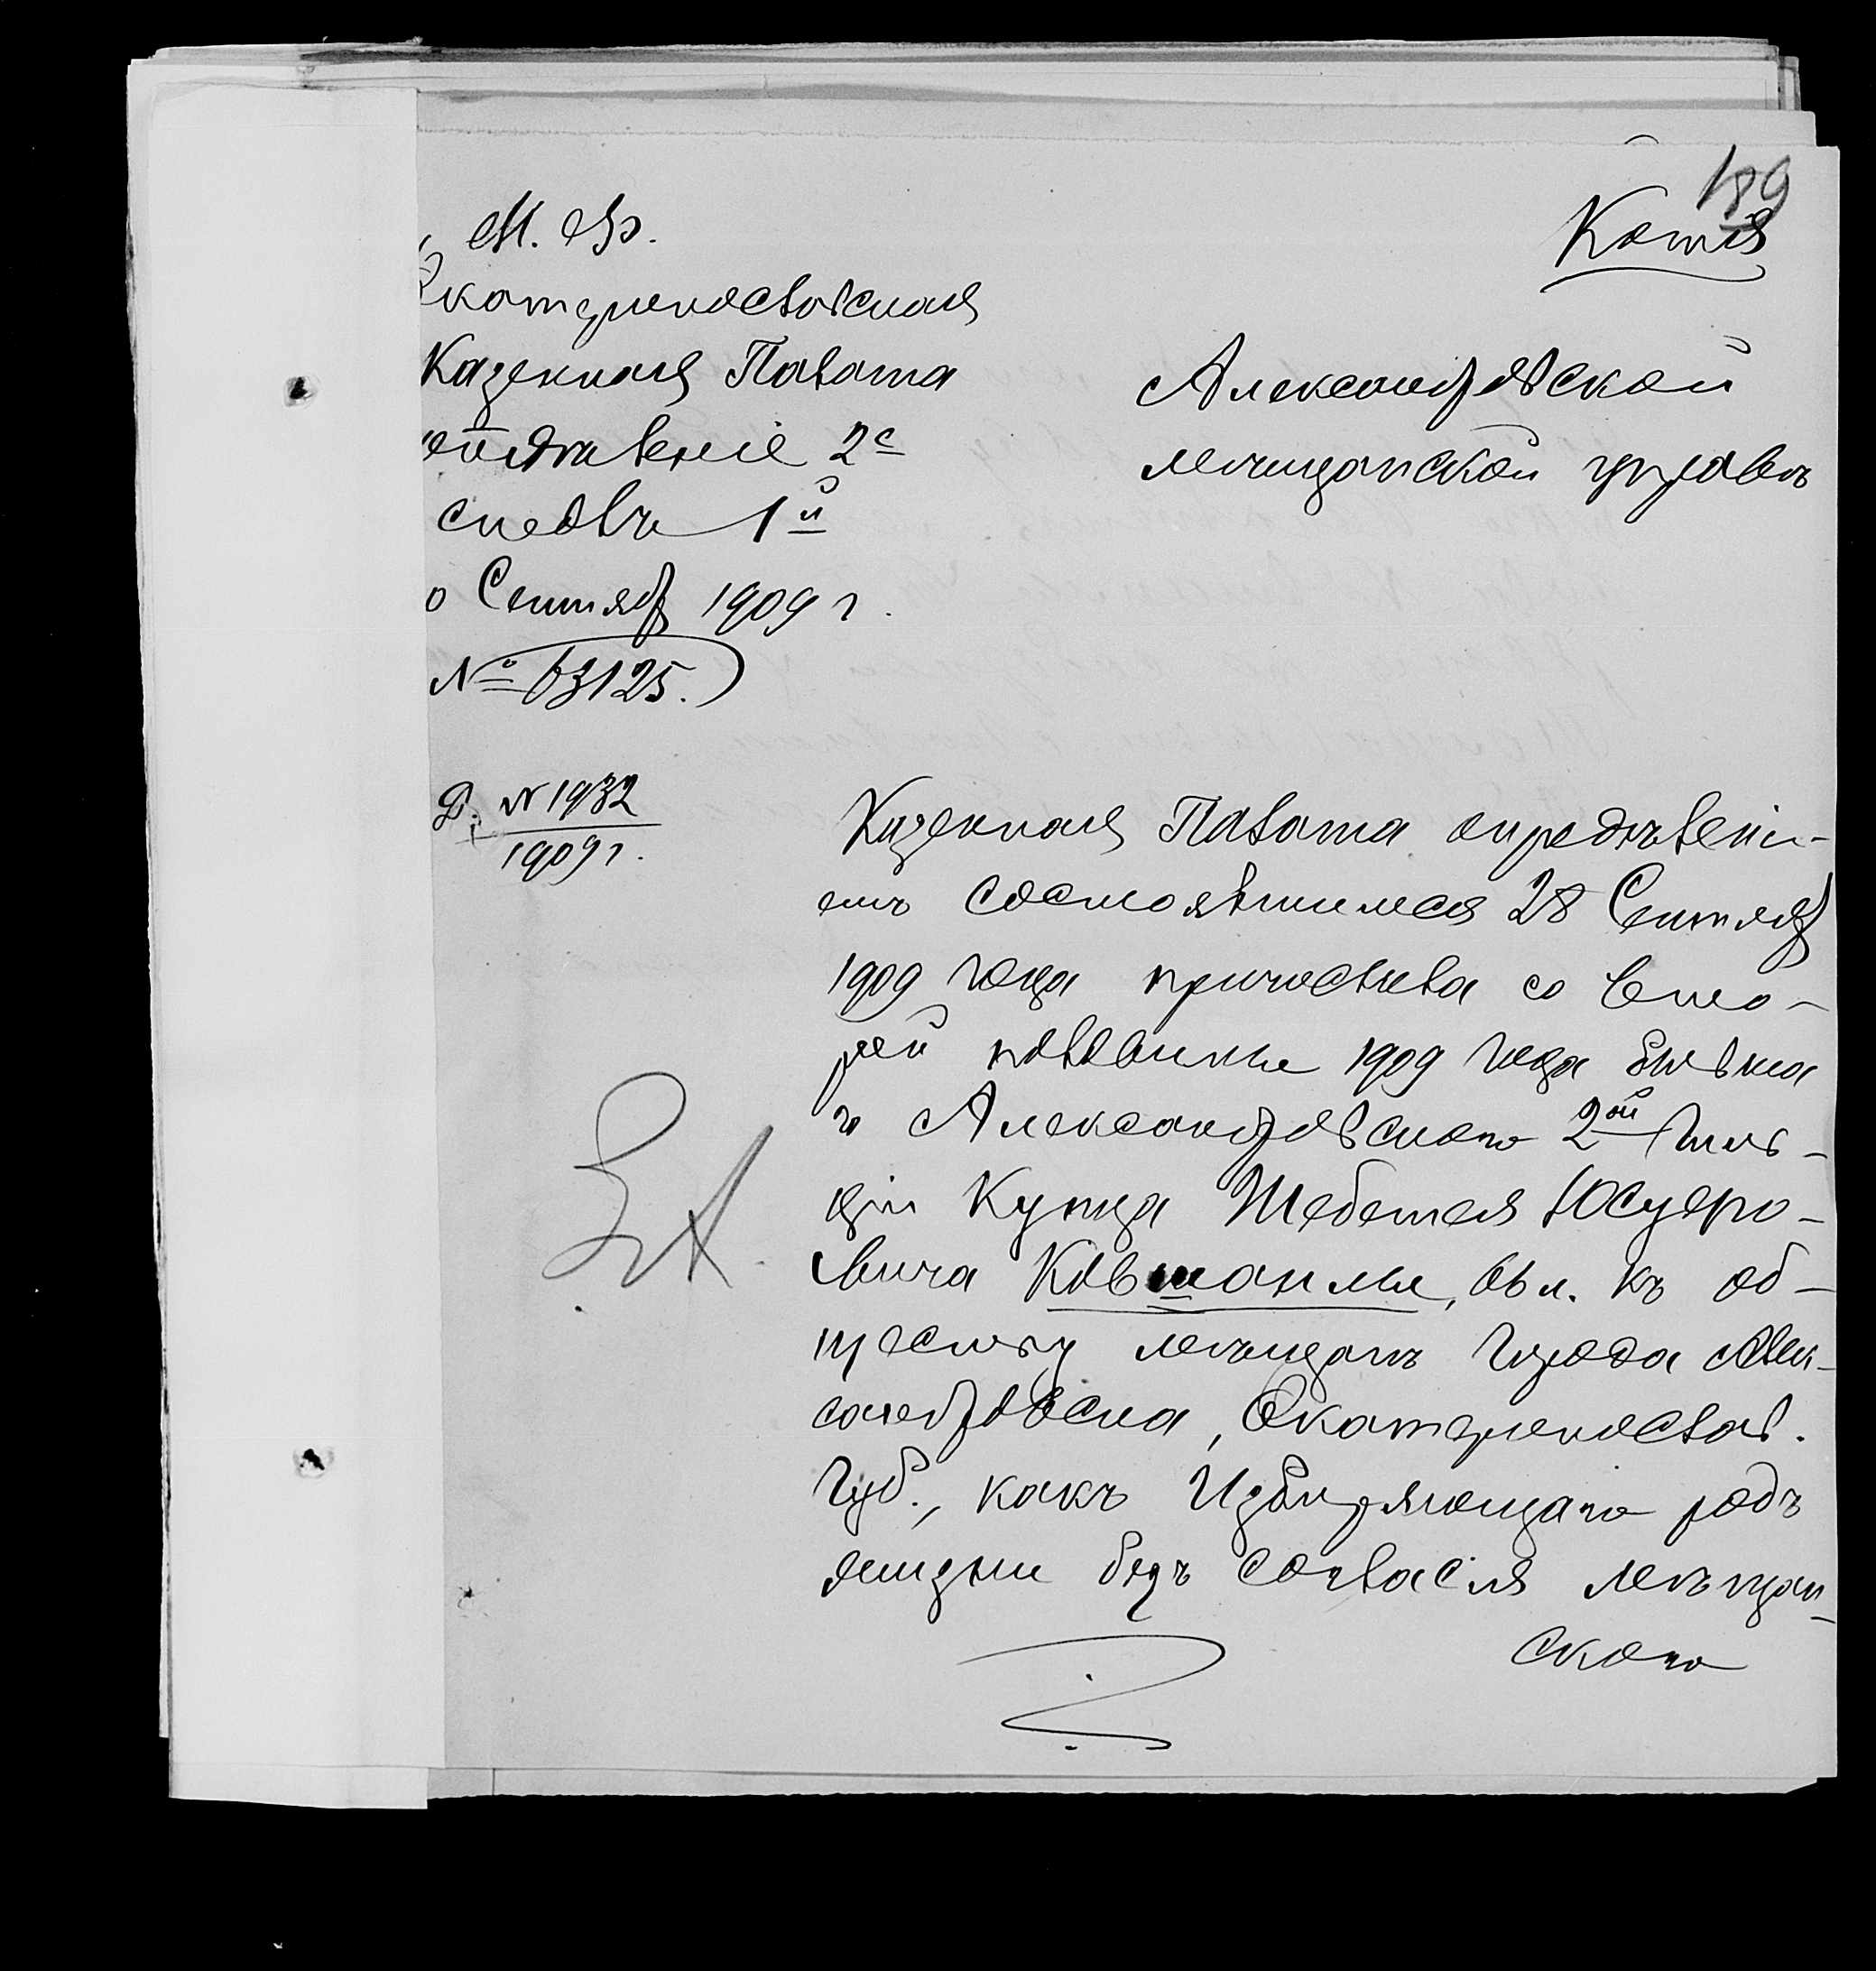 189
Копія
М. Ф.
Екатеринославская
Казенная Палата
Отдѣленіе 2е
столъ 1й
Сентябр 1909 г.
№ 63125.
Александровской
мѣщанской управѣ
Д. № 1932
1909 г.
Казенная Палата опредѣлені-
емъ состоявшимся 28 Сентябр
1909 года причислила со вто-
рой половины 1909 года бывша
го Александровскаго 2ой Гиль-
діи Купца Шебетея Юсуфо-
вича Ковшанлы, къ об-
ществу мѣщанъ города Алек-
сандровска, Екатеринослав.
Губ., какъ Избирающаго родъ
жизни безъ согласія мѣщан-
скаго